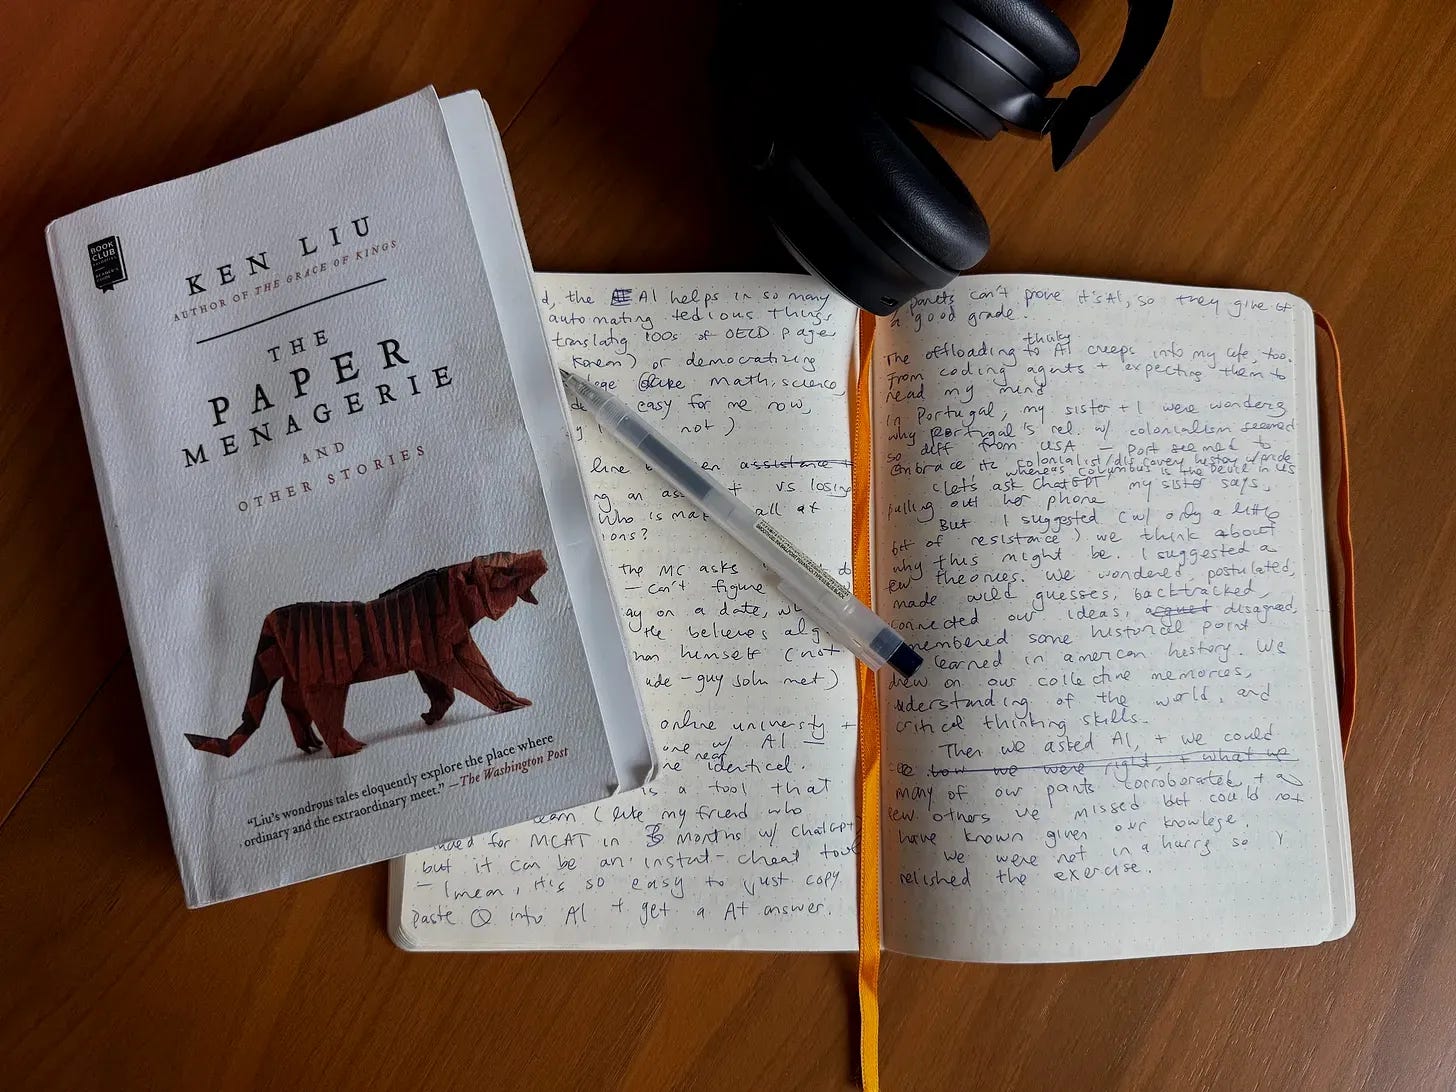 BOOK
CLUB
KEN LIU
AUTHOR OF THE GRACE OF KINGS
THE
PAPER
MENAGERIE
AND
OTHER STORIES
"Liu's wondrous tales eloquently explore the place where
ordinary and the extraordinary meet." —The Washington Post
d, the AI helps in so many
automating tedious things
translatig 100s of OECD page
Korean) or democratizing
math, science,
easy for me now,
not)
line assistance
ng an vs losing
who is all at
ions?
the MC asks
– can't figure
ay on a date,
the believes alg
himself (not
ude – guy John met)
online university +
one w/ AI —
near
identical.
is a tool that
(like my friend who
for MCAT in 3 months w/ ChatGPT
but it can be an instant-cheat tool
– I mean, it's so easy to just copy
paste Q into AI + get a A+ answer.
can't prove it's AI, so they give it
a good grade.
thinking
The offloading to AI creeps into my life, too.
From coding agents + expecting them to
read my mind
In Portugal, my sister + I were wondering
why Portugal's rel. w/ colonialism seemed
so diff from USA — Port seemed to
embrace its colonialist/discovery history w/ pride
whereas Columbus is the Devil in US
"Let's ask ChatGPT," my sister says,
pulling out her phone
But I suggested (w/ only a little
bit of resistance) we think about
why this might be. I suggested a
few theories. We wondered, postulated,
made wild guesses, backtracked,
connected our ideas, argued disagreed,
remembered some historical point
learned in american history. We
drew on our collective memories,
understanding of the world, and
critical thinking skills.
Then we asked AI, + we could
see how we were right, + what we
many of our points corroborated + a
few others we missed but could not
have known given our knowlege.
We were not in a hurry so I
relished the exercise.